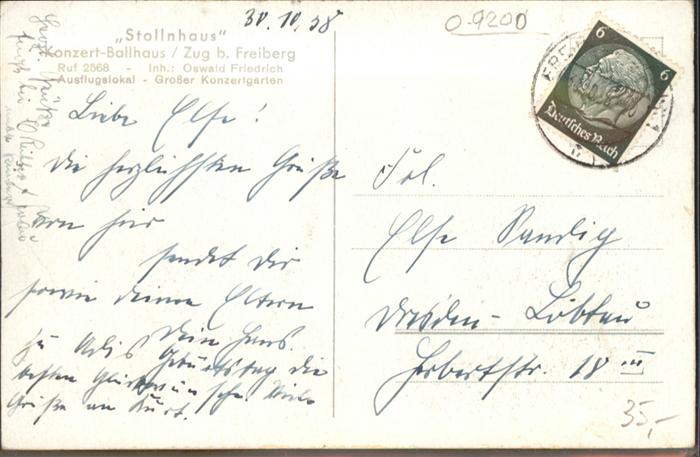 30.10.38
0-9200
„Stollnhaus"
Konzert-Ballhaus / Zug b. Freiberg
Ruf 2568 - Inh.: Oswald Friedrich
Ausflugslokal - Großer Konzertgarten
Liebe Else!
die herzlichsten Grüße
von hier
sendet dir
sowie deinen Eltern
Dein Hans.
zu Geburtstag die
besten Glückwünsche. Viele
Grüße an Kurt.
6 6
Deutsches Reich
Frl.
Else Sandig
Dresden-Löbtau
Herbertstr. 18 III
35,-